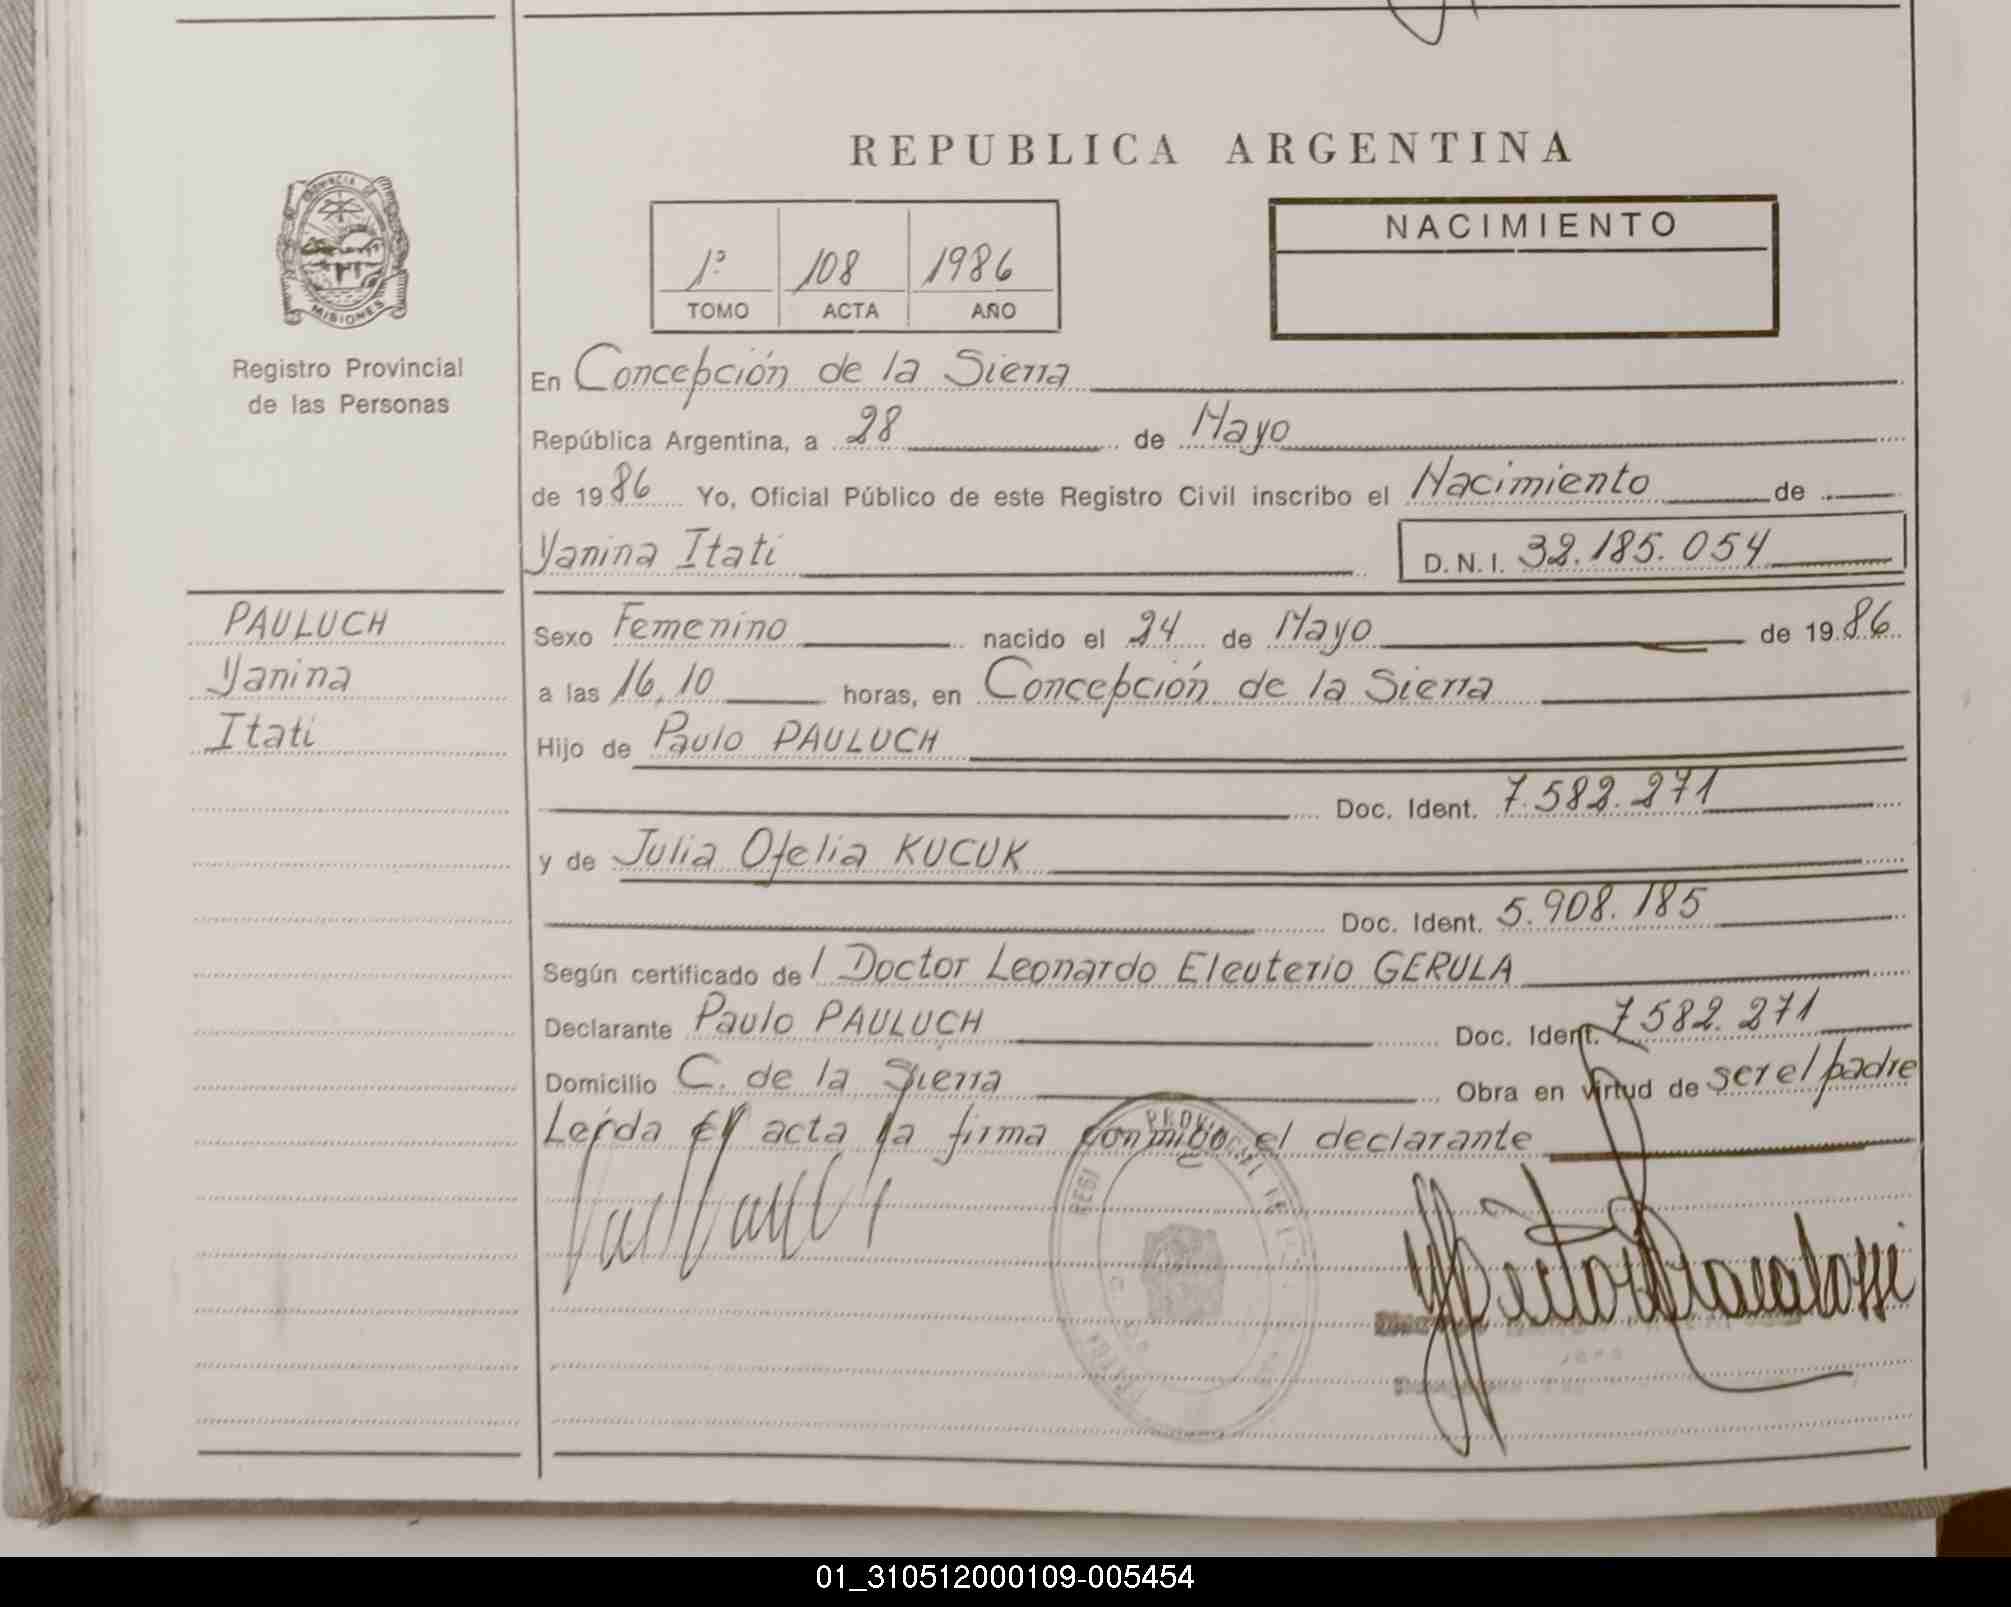 REPUBLICA ARGENTINA
PROVINCIA DE
MISIONES
Registro Provincial
de las Personas
1º 108 1986
TOMO ACTA AÑO
NACIMIENTO
En Concepción de la Sierra
República Argentina, a 28 de Mayo
de 1986 Yo, Oficial Público de este Registro Civil inscribo el Nacimiento de
Yanina Itati D.N.I. 32.185.054
PAULUCH
Yanina
Itati
Sexo Femenino nacido el 24 de Mayo de 1986
a las 16,10 horas, en Concepción de la Sierra
Hijo de Paulo PAULUCH
Doc. Ident. 7.582.271
y de Julia Ofelia KUCUK
Doc. Ident. 5.908.185
Según certificado del Doctor Leonardo Eleuterio GERULA
Declarante Paulo PAULUCH Doc. Ident. 7582.271
Domicilio C. de la Sierra Obra en virtud de ser el padre
Leída el acta la firma conmigo el declarante
PROVINCIAL
01_310512000109-005454